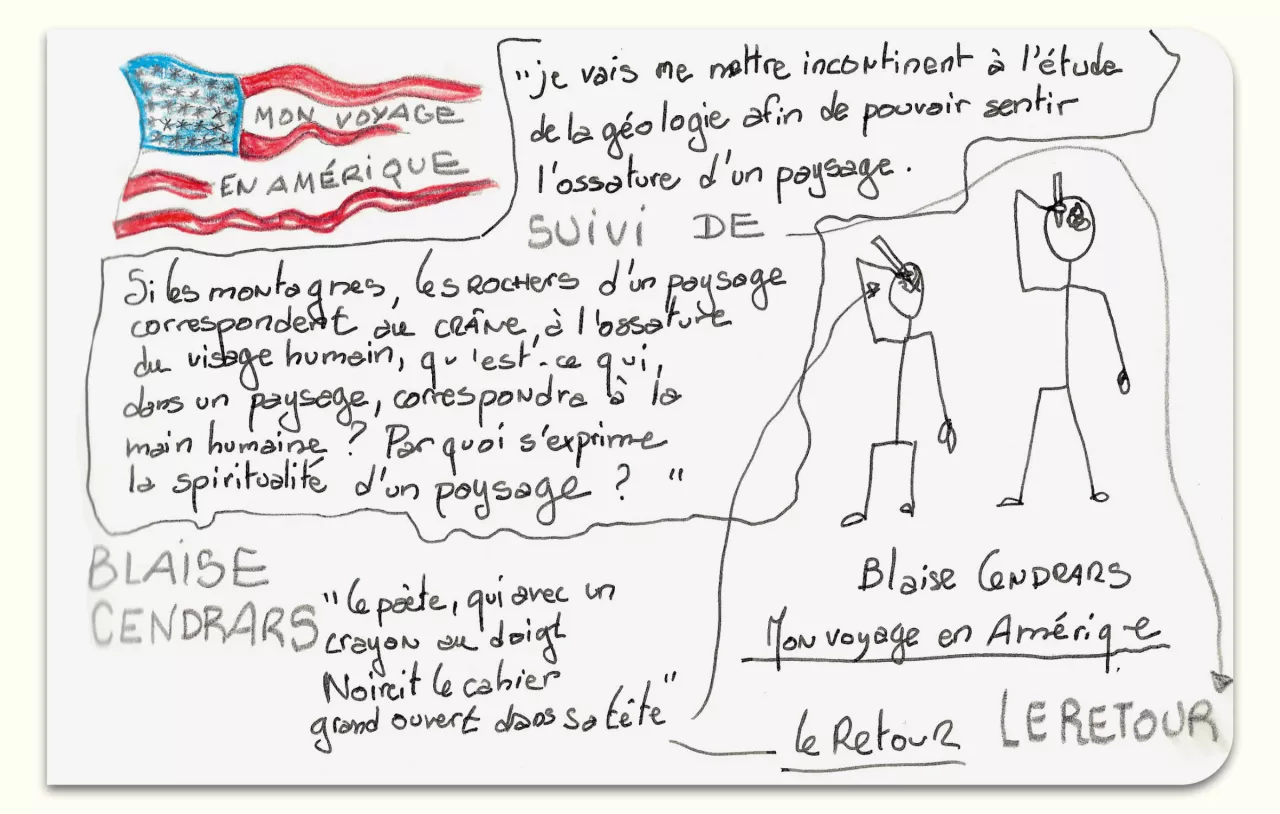 MON VOYAGE
EN AMÉRIQUE
"je vais me mettre incontinent à l'étude
de la géologie afin de pouvoir sentir
l'ossature d'un paysage.
SUIVI DE
Si les montagnes, les ROCHERS d'un paysage
correspondent au CRÂNE, à l'ossature
du visage humain, qu'est-ce qui,
dans un paysage, correspondra à la
main humaine ? Par quoi s'exprime
la spiritualité d'un paysage ? "
BLAISE
CENDRARS
"Le poète, qui avec un
crayon au doigt
Noircit le cahier
grand ouvert dans sa tête"
Blaise CENDRARS
Mon voyage en Amériq-e
le Retour
LE RETOUR